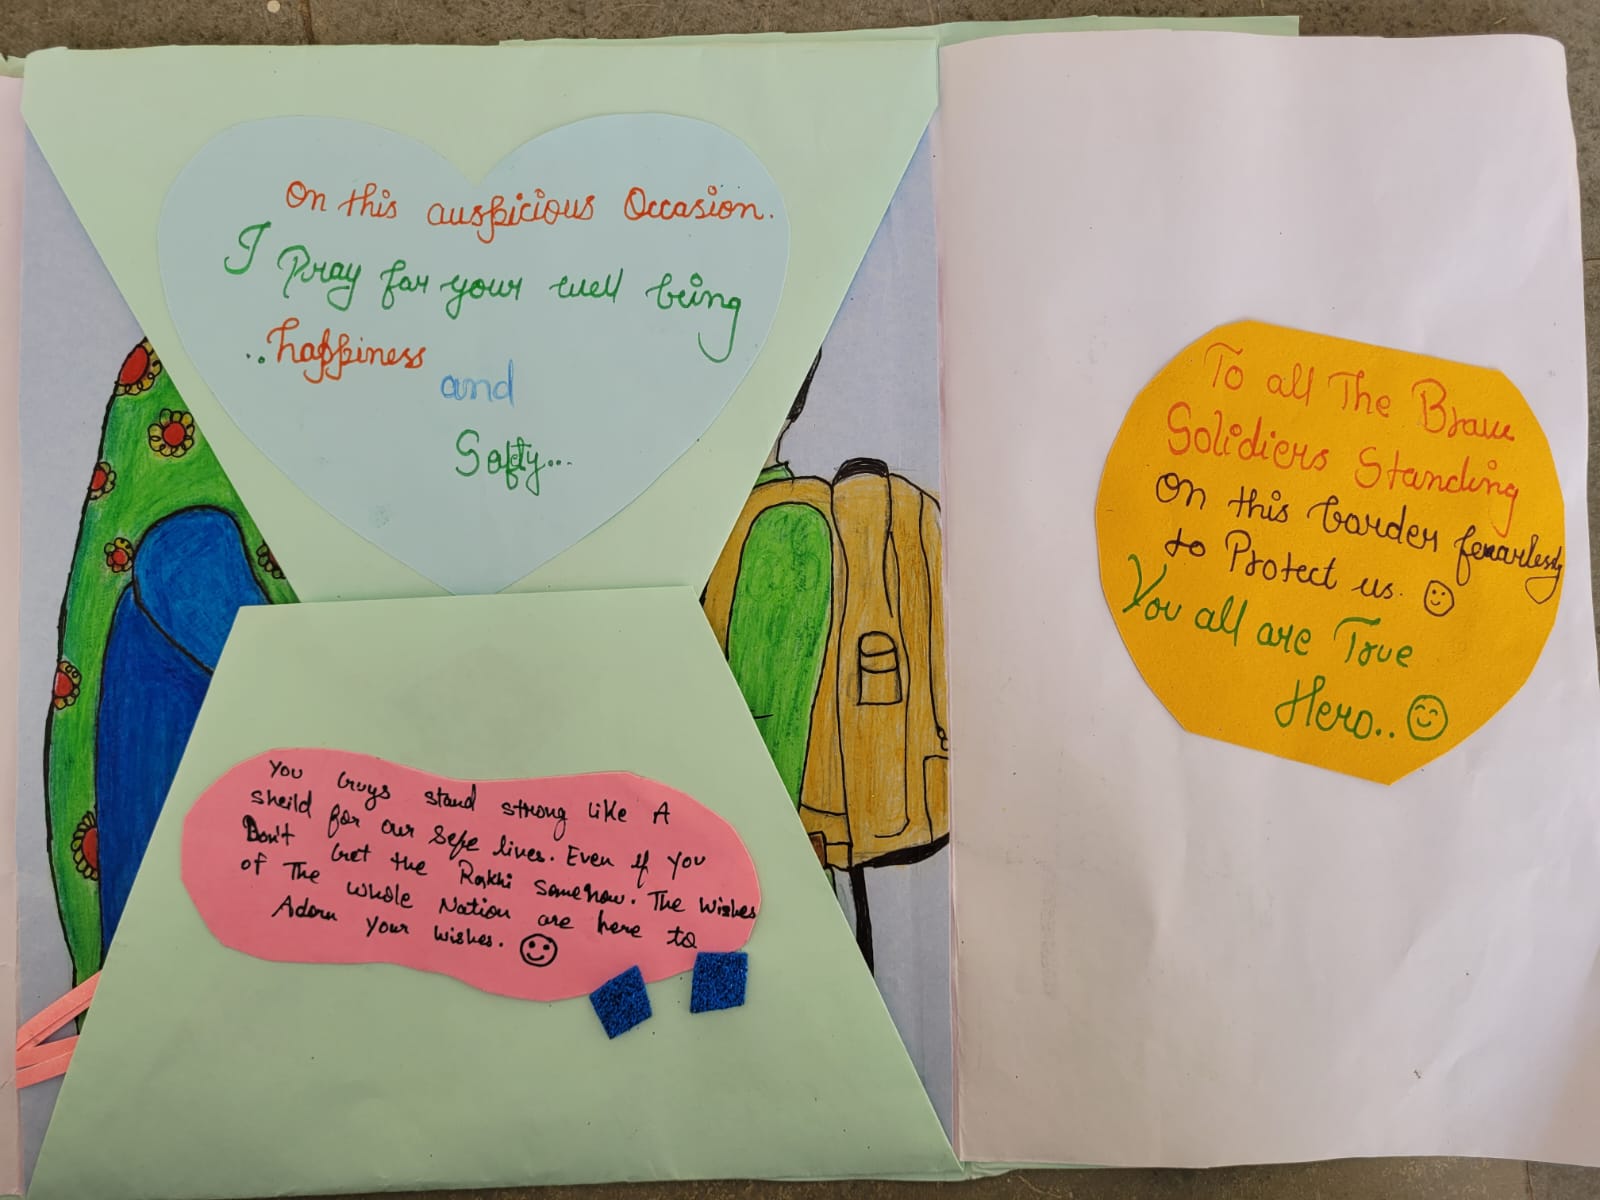 On this auspicious Occasion.
I Pray for your well being
..happiness
and
Safty...
You Guys stand strong like A
sheild for our sefe lives. Even if you
Don't Get the Rakhi somehow. The wishes
of The whole Nation are here to
Adorn your wishes.
To all The Brave
Solidiers Standing
On this border fearlessly
to Protect us.
You all are True
Hero..